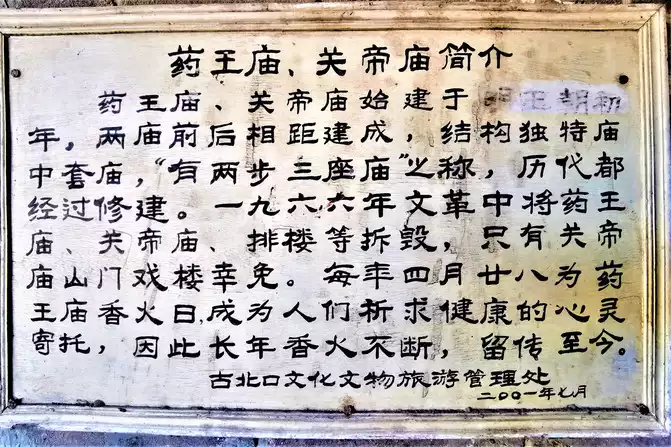 药王庙、关帝庙简介
药王庙、关帝庙始建于初
年，两庙前后相距建成，结构独特庙
中套庙，“有两步三座庙”之称，历代都
经过修建。一九六六年文革中将药王
庙、关帝庙、排楼等拆毁，只有关帝
庙山门戏楼幸免。每年四月廿八为药
王庙香火日，成为人们祈求健康的心灵
寄托，因此长年香火不断，留传至今。
古北口文化文物旅游管理处
二〇〇一年七月